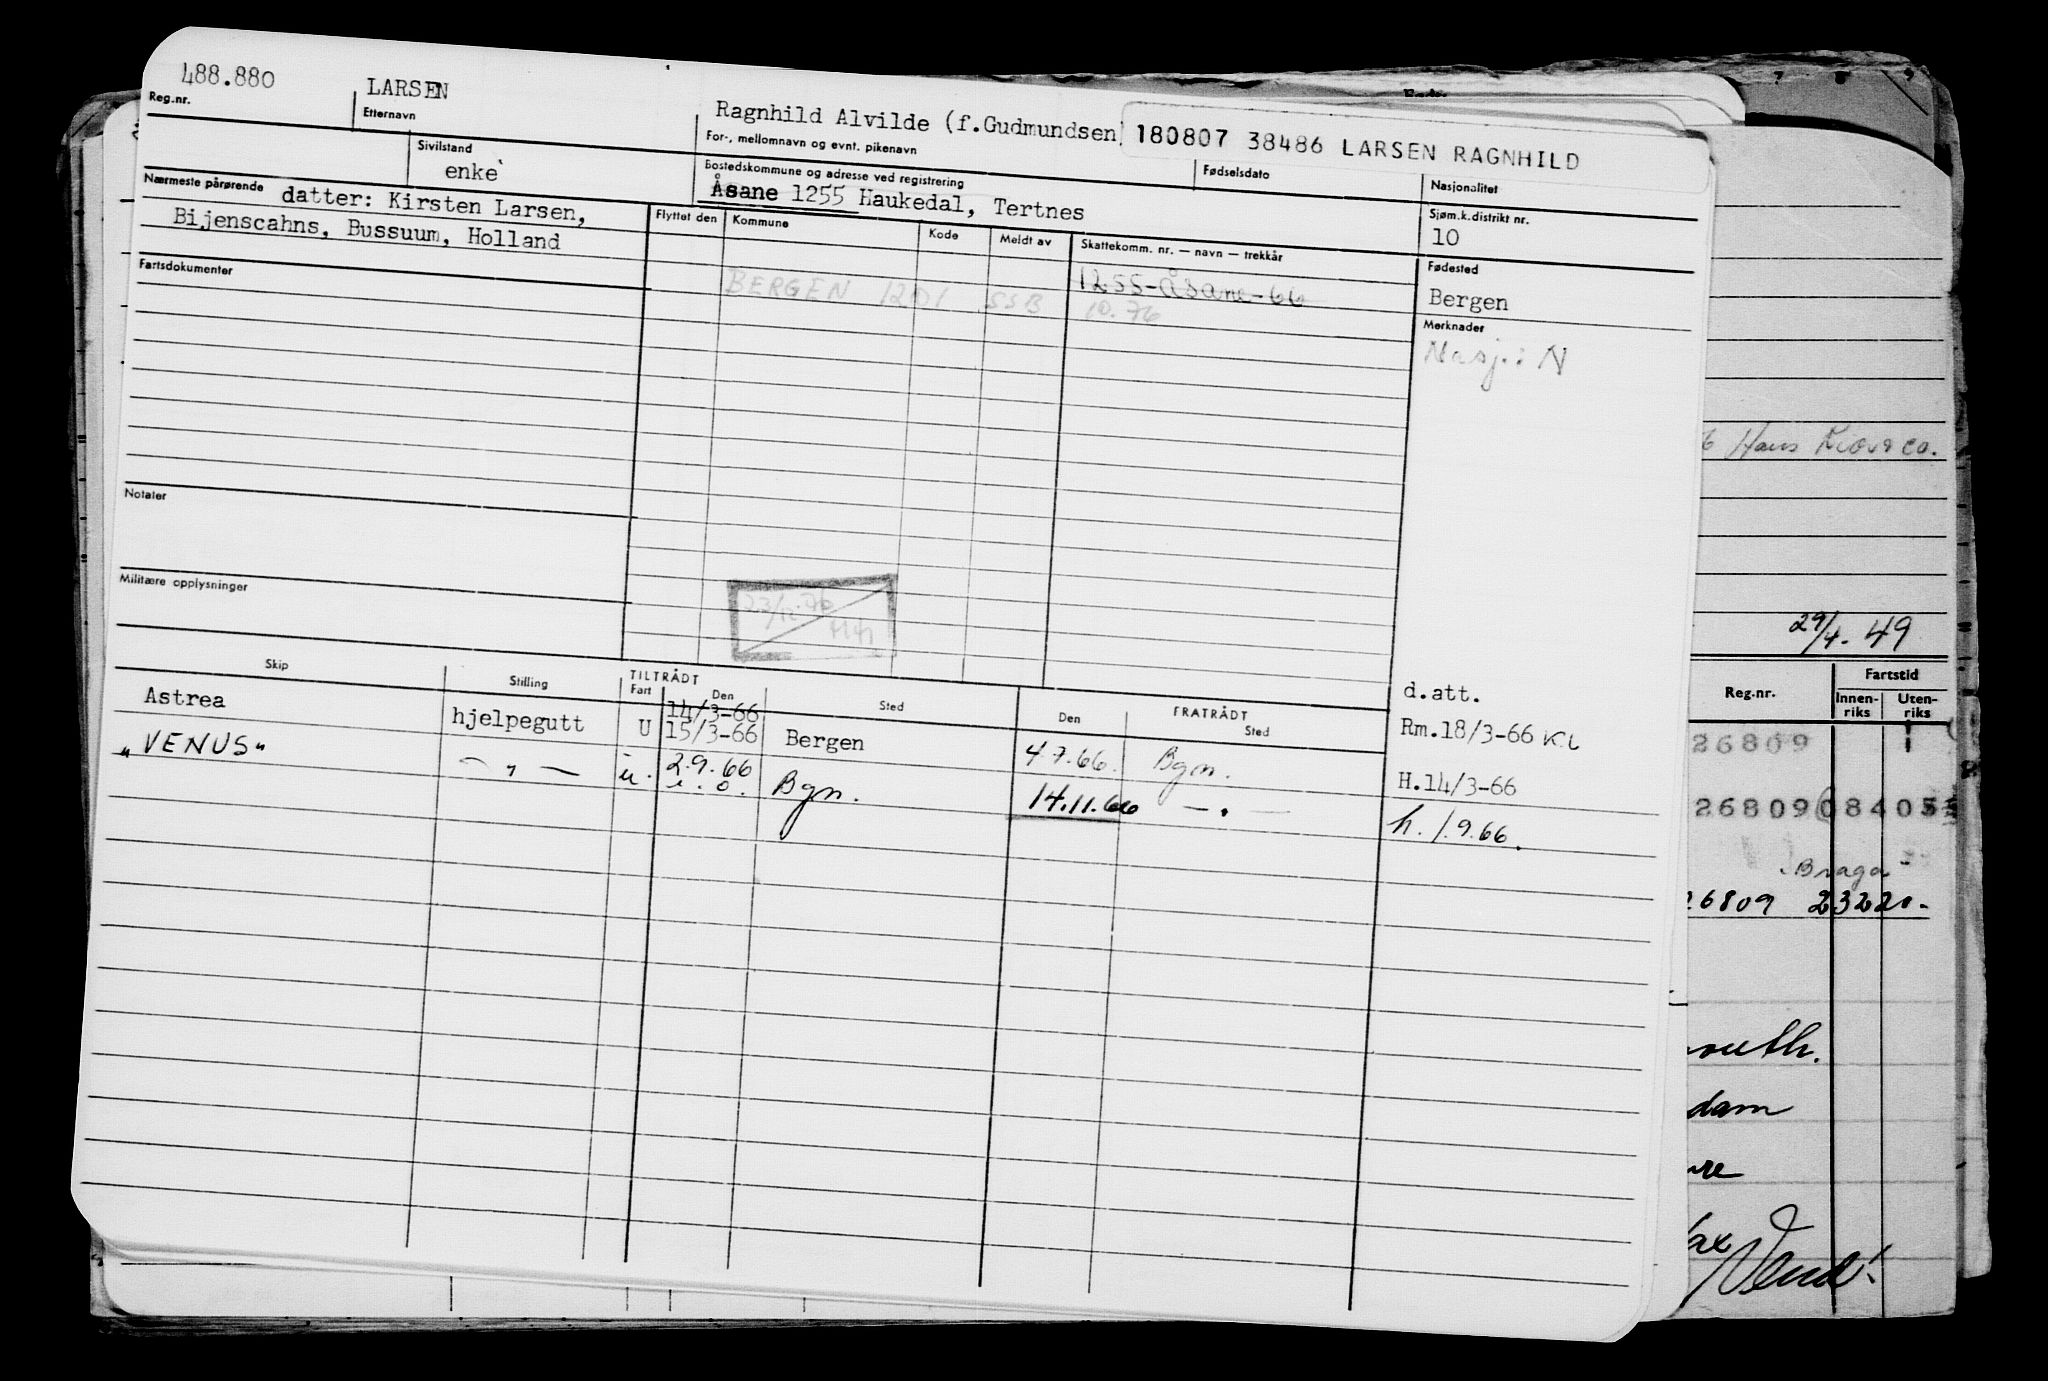 488.880 LARSEN Ragnhild Alvilde (f.Gudmundsen) 180807 38486 LARSEN RAGNHILD
Reg.nr. Etternavn For-, mellomnavn og evnt. pikenavn Fødselsdato Nasjonalitet
Sivilstand Bostedskommune og adresse ved registrering Sjøm.k.distrikt nr.
enke Åsane 1255 Haukedal, Tertnes 10
Nærmeste pårørende datter: Kirsten Larsen,
Bijenscahns, Bussuum, Holland
Flyttet den Kommune Kode Meldt av Skattekomm. nr. — navn — trekkår Fødested
Bergen
Fartsdokumenter BERGEN 1201 SSB 1255-Åsane-66
10.76
Merknader
Nasj.: N
Notater
Militære opplysninger
23/12.76
Skip Stilling TILTRÅDT FRATRÅDT
Fart Den Sted Den Sted
d.att.
Astrea hjelpegutt U 14/3-66
15/3-66 Bergen 4.7.66. Bgn. Rm.18/3-66 KL
H.14/3-66
"VENUS" — " — u. 2.9.66
i.o. Bgn. 14.11.66 — . — h. 1.9.66.
7 8 9
Hans Kiær & Co.
29/4-49
Fartstid
Reg.nr. Innen-riks Uten-riks
26809
26809 08405
Braga
26809 23220-
outh.
dam